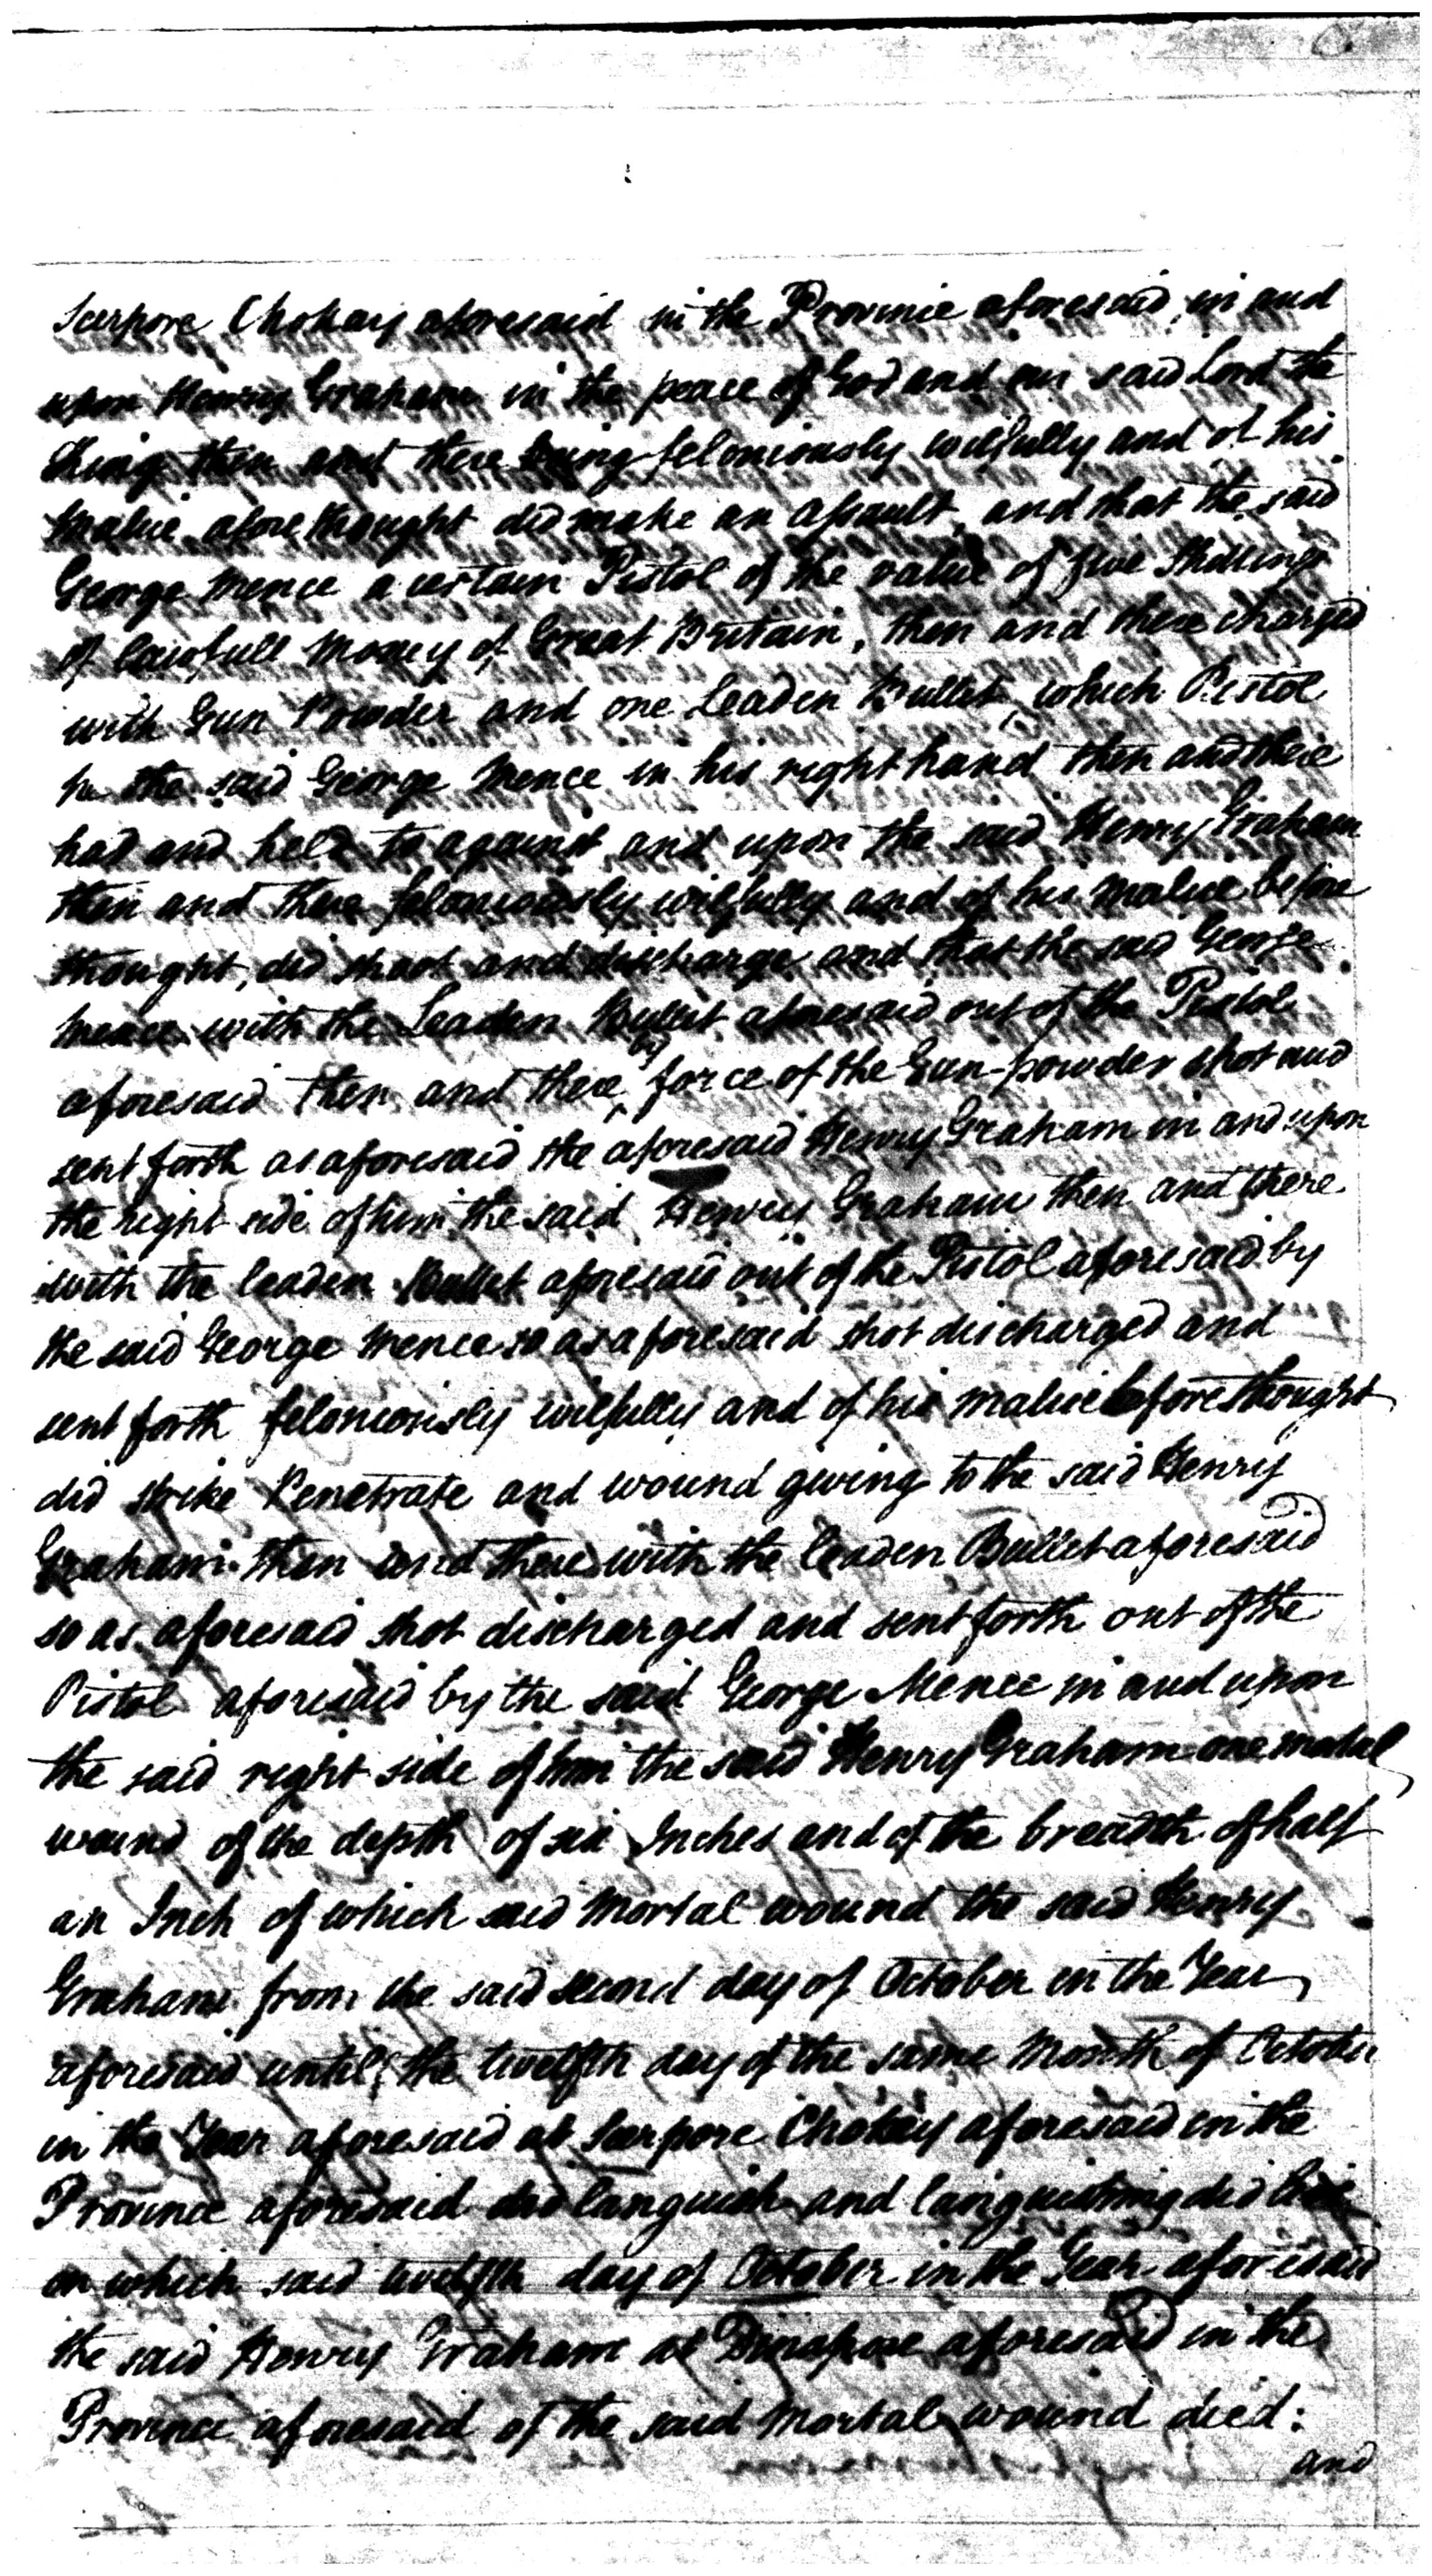 Seerpore Chokey aforesaid in the Province aforesaid, in and
upon Henry Graham in the peace of God and our said Lord the
King then and there being feloniously wilfully and of his
Malice afore thought did make an assault, and that the said
George Mence a certain Pistol of the value of five Shillings
of lawfull Money of Great Britain, then and there charged
with Gun Powder and one Leaden Bullet, which Pistol
he the said George Mence in his right hand then and there
had and held to against and upon the said Henry Graham
then and there feloniously wilfully and of his Malice before
thought, did shoot and discharge and that the said George
Mence with the Leaden Bullet aforesaid out of the Pistol
aforesaid then and there by force of the Gun-powder shot and
sent forth as aforesaid the aforesaid Henry Graham in and upon
the right side of him the said Henry Graham then and there
with the leaden Bullet aforesaid out of the Pistol aforesaid by
the said George Mence so as aforesaid shot discharged and
sent forth feloniously wilfully and of his malice beforethought
did strike Penetrate and wound giving to the said Henry
Graham then and there with the leaden Bullet aforesaid
so as aforesaid shot discharged and sent forth out of the
Pistol aforesaid by the said George Mence in and upon
the said right side of him the said Henry Graham one mortal
wound of the depth of six Inches and of the breadth of half
an Inch of which said Mortal wound the said Henry
Graham from the said second day of October in the Year
aforesaid until the twelfth day of the same Month of October
in the Year aforesaid at Seerpore Chokey aforesaid in the
Province aforesaid did languish and languishing did live
on which said twelfth day of October in the Year aforesaid
the said Henry Graham at Dinapore aforesaid in the
Province aforesaid of the said Mortal wound died:
and